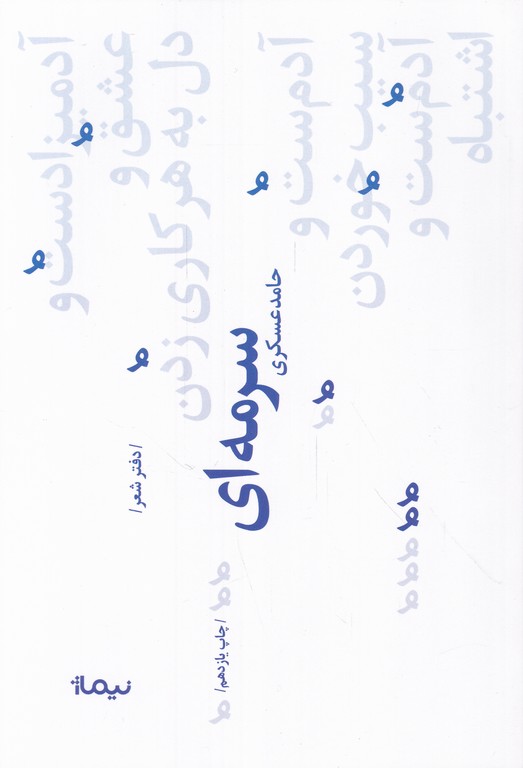 آدمیزادست و
عشق و
دل به هر کاری زدن
آدم‌ست و
سیب خوردن
آدم‌ست و
اشتباه
سرمه‌ای
حامد عسکری
/ دفتر شعر /
/ چاپ یازدهم /
نیماژ